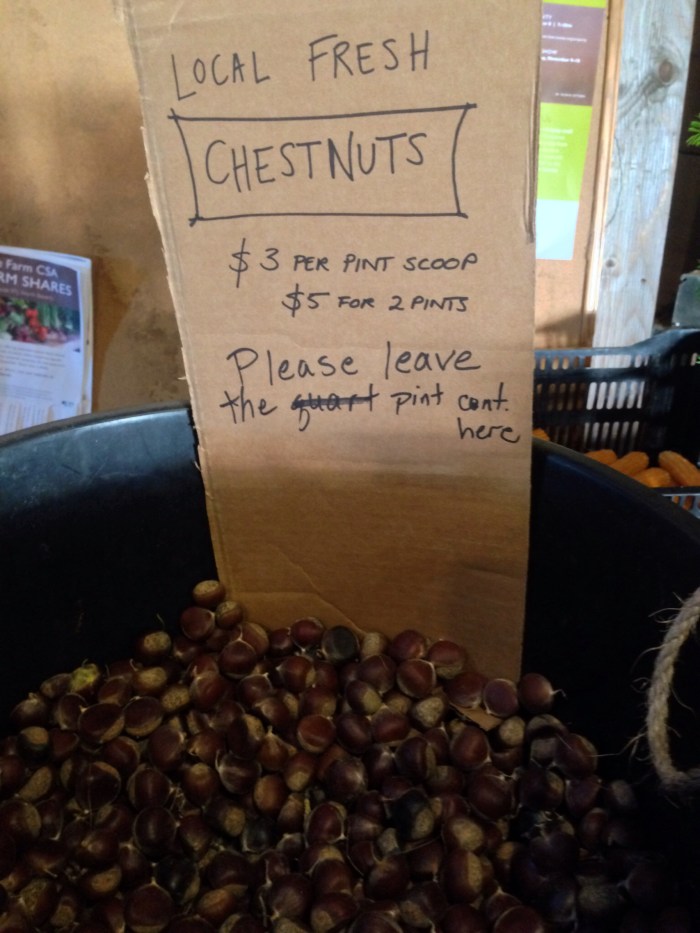 LOCAL FRESH
CHESTNUTS
$3 PER PINT SCOOP
$5 FOR 2 PINTS
Please leave
the quart pint cont.
here
Farm CSA
RM SHARES